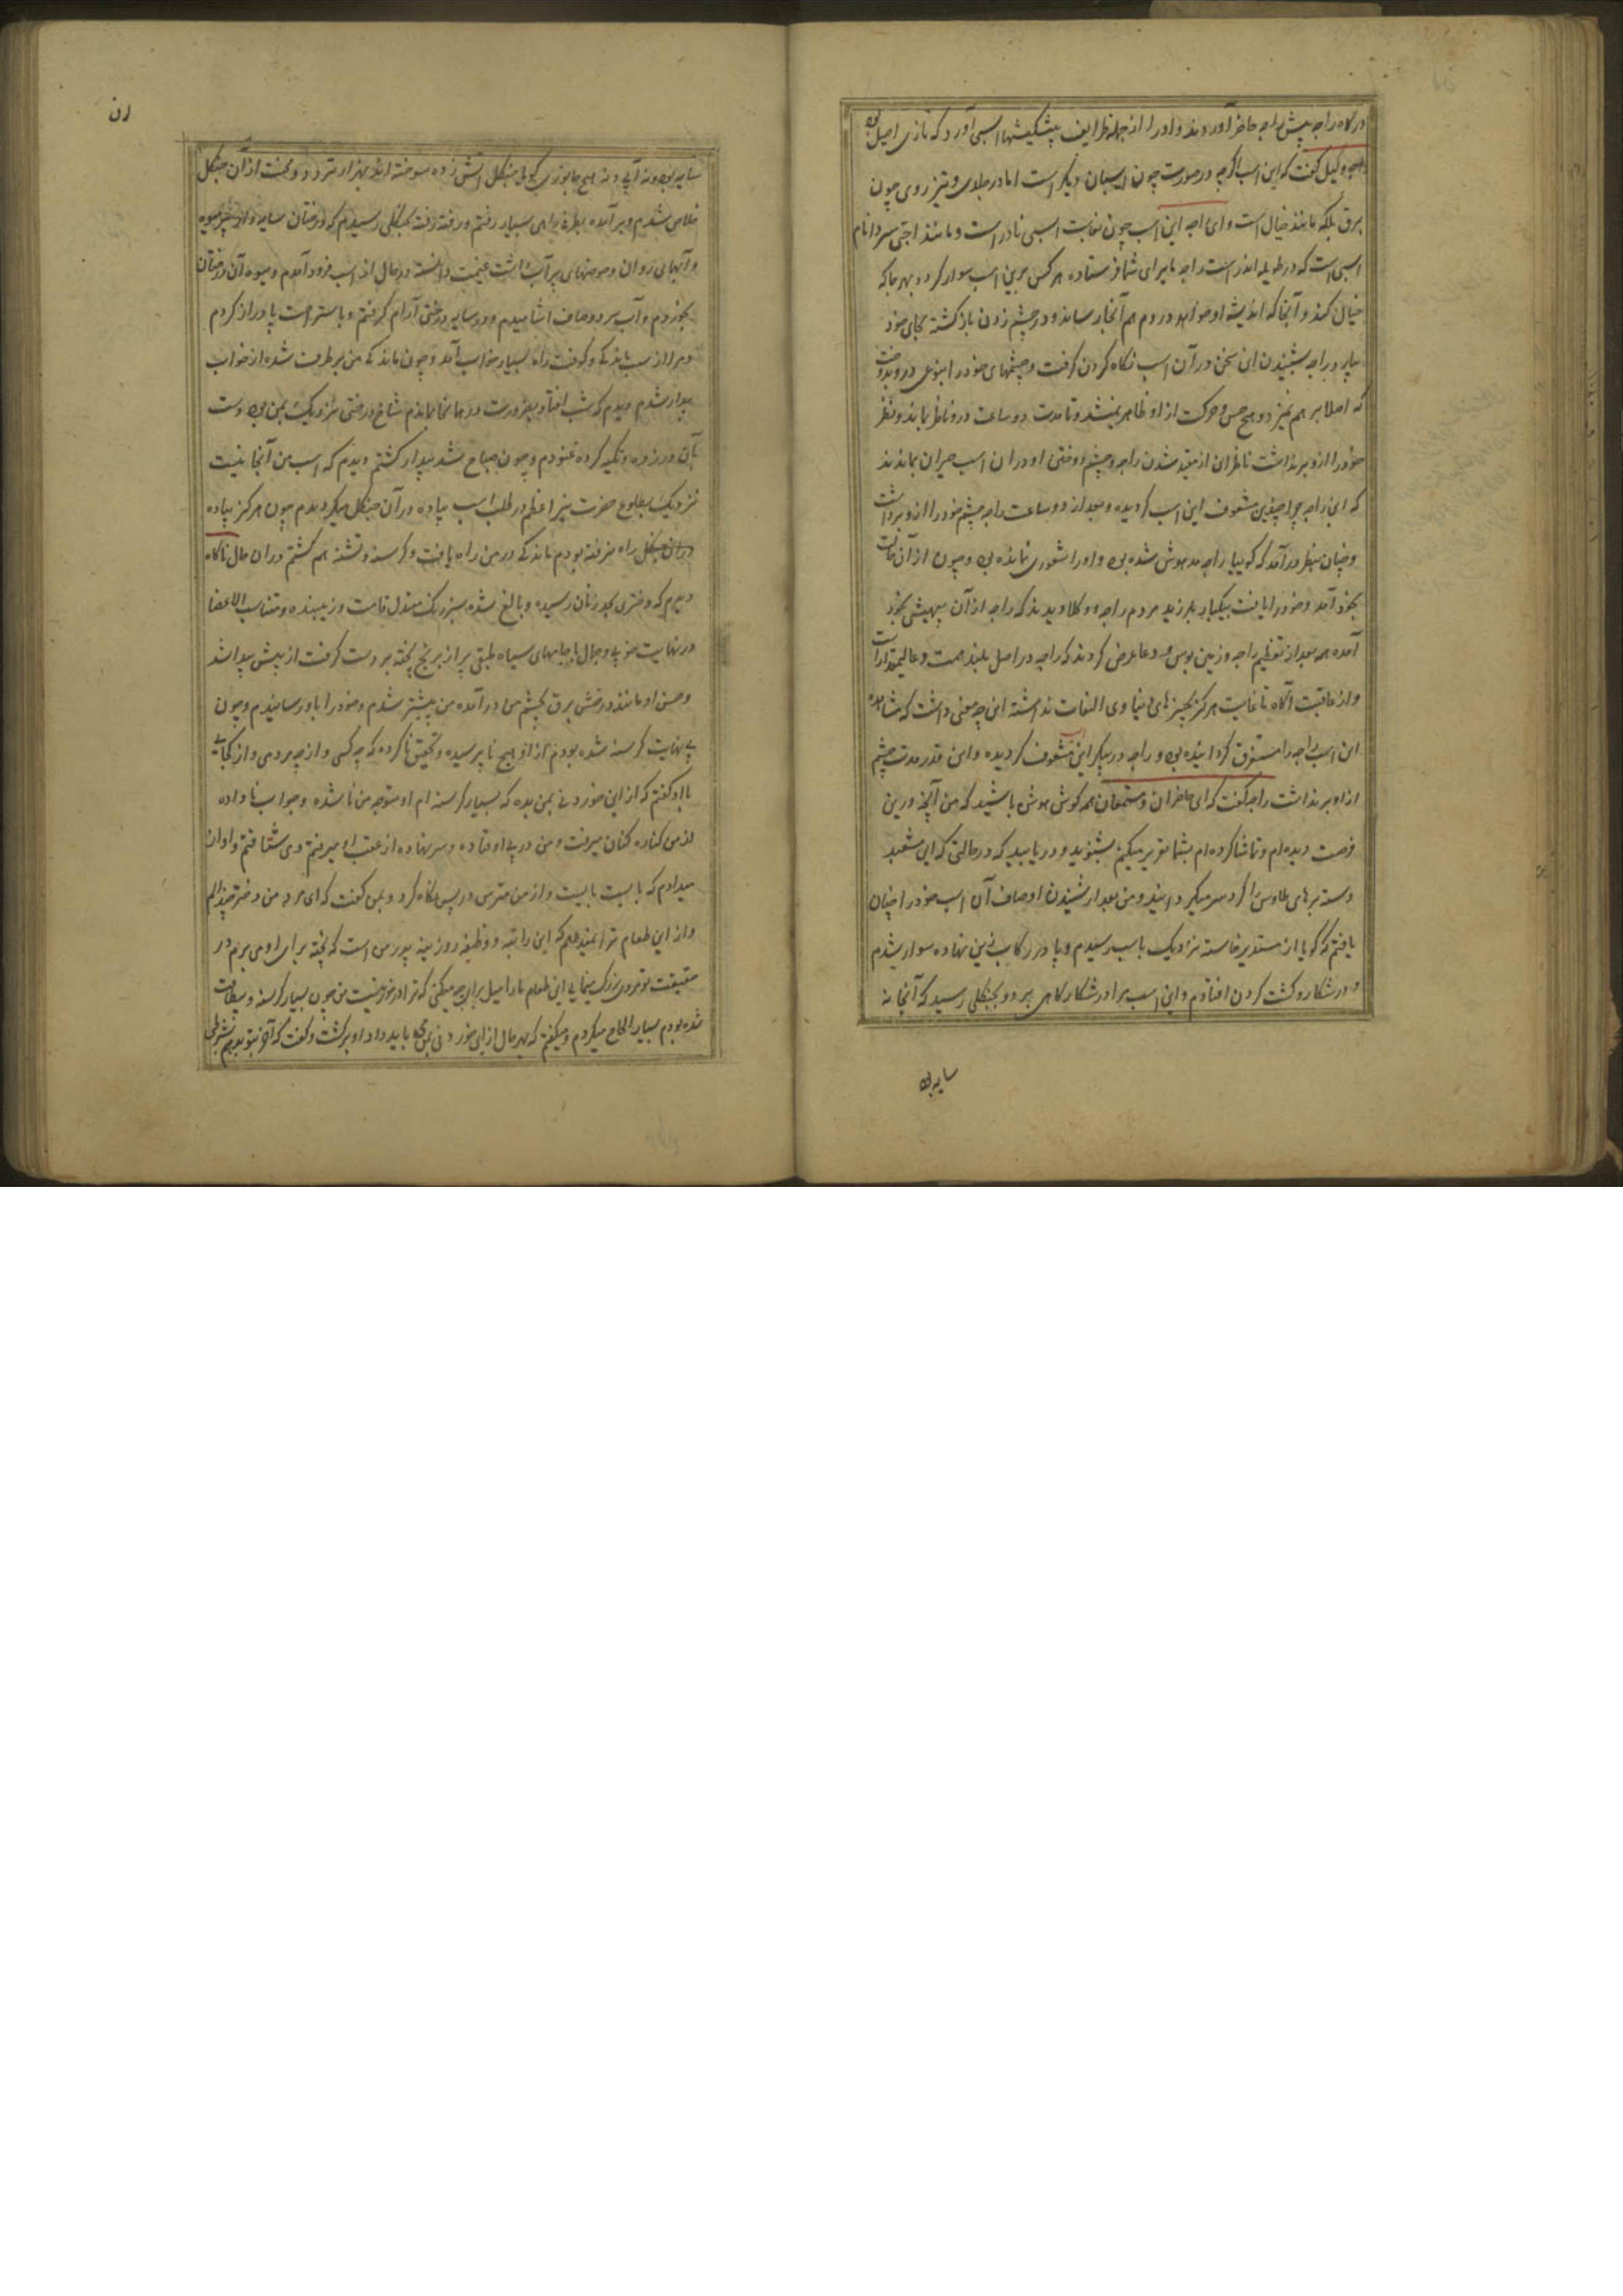 درگاه راجه پیش راجه حاضر آوردند و او را از جمله ظرایف پیشکشها اسبی آورد که تازی اصیل بود
وکیل گفت که این اسب اگرچه در صورت چون اسپان دیگر است اما در جلدی و تیز روی چون
برق بلکه مانند خیال است و ای راجه این اسب چون بغایت اسبی نادر است و مانند
اسبی است که در طویله اندر است راجه ما برای شما فرستاده هر کس برین اسب سوار گردد بهر جا که
خیال کند و آنجا که اندیشه او خواهد در دم هم آنجا رساند و در چشم زدن بازگشته بجای خود
بیارد راجه بشنیدن این سخن در آن اسب نگاه کردن گرفت و چشمهای خود را بنوعی درو بدوخت
که اصلا بر هم نیزد و هیچ حس و حرکت از او ظاهر نمیشد و تا مدت دو ساعت درو ناظر بماند و نظر
خود را ازو برنداشت ناظران از مقید شدن راجه و چشم دوختن او در آن اسب حیران بماندند
که این راجه چرا چنین مشعوف این اسب گردیده و بعد از دو ساعت راجه چشم خود را ازو برداشت
و چنان بنظر درآمد که گوییا راجه مدهوش شده بود و او را شعوری نمانده بود و چون از آن حالت
بخود آمد و خود را یافت بیکبار بلرزید مردم راجه و وکلا دیدند که راجه از آن بیهشی بخود
آمده همه بعد از تعظیم راجه و زمین بوس و دعا عرض کردند که راجه در اصل بلند همت و عالیمقدار است
و از عاقبت آگاه تا غایت هرگز بچیزهای دنیاوی التفات نداشته این چه معنی داشت که مشاهده
این اسب راجه را مستغرق گردانیده بود و راجه در پیکر این مشعوف گردیده و این قدر مدت چشم
از او برنداشت راجه گفت که ای حاضران و مستمعان همه گوش هوش باشید که من آنچه درین
فرصت دیده ام و تماشا کرده ام بشما تقریر میکنم بشنوید و دریابید که در حالتی که این مشعبد
دسته پرهای طاوس را گرد سر میگردانید و من بعد از شنیدن اوصاف آن اسب خود را چنان
یافتم که گویا از مسند برخاسته نزدیک باسب رسیدم و پا در رکاب زین نهاده سوار شدم
و در شکار و گشت کردن افتادم و این اسب مرا در شکارگاهی برد و بجنگلی رسید که آنجا نه
سایه بود
سایه بود و نه آبی و نه هیچ جانوری گویا جنگل آتش زده سوخته اند بهزار تردد و محنت از آن جنگل
خلاص شدم و برآمده بطرفی راهی بسیار رفتم و رفته رفته بجنگلی رسیدم که درختان سایه دار پر میوه
و آبهای روان و حوضهای پر آب داشت غنیمت دانسته در حال از اسب فرود آمدم و میوه آن درختان
بخوردم و آب سرد و صاف آشامیدم و در سایه درختی آرام گرفتم و باستراحت پا دراز کردم
و مرا از سبب ماندگی و کوفت راه بسیار خواب آمد و چون ماندگی من برطرف شده از خواب
بیدار شدم دیدم که شب افتاد بضرورت در همانجا ماندم شاخ درختی نزدیک بمن بود دست
بآن در زده و تکیه کرده غنودم و چون صباح شد بیدار گشتم دیدم که اسب من آنجا نیست
نزدیک بطلوع حضرت نیر اعظم در طلب اسب پیاده در آن جنگل میگردیدم چون هرگز پیاده
در آن جنگل راه نرفته بودم ماندگی در من راه یافت و گرسنه و تشنه هم گشتم در آن حال ناگاه
دیدم که دختری بحد زنان رسیده و بالغ شده سبز رنگ معتدل قامت و زیبنده و متناسب الاعضا
در نهایت خوبی و جمال با جامهای سیاه طبقی پر از برنج پخته بر دست گرفت از پیش پیدا شد
و حسن او مانند درخش برق بچشم من درآمده من پیشتر شدم و خود را باو رسانیدم و چون
بی نهایت گرسنه شده بودم از او هیچ ناپرسیده و تحقیق ناکرده که چه کسی و از چه مردمی و از کجایی
با او گفتم که از این خوردنی بمن بده که بسیار گرسنه ام او متوجه من ناشده و جواب ناداده
از من کناره کنان میرفت و من در پی او فتاده و سر نهاده از عقب او میرفتم و می شتافتم و آواز
میدادم که بایست بایست و از من مترس در پس نگاه کرد و بمن گفت که ای مرد من دختر چندالم
و از این طعام ترا نمیدهم که این راتبه و وظیفه روزینه پدر من است که پخته برای او می برم در
حقیقت تو مردی بزرگ مینمایی این طعام ما را میل برای چه میکنی که ترا در خور نیست من چون بسیار گرسنه و بیطاقت
شده بودم بسیار الحاح میکردم و میگفتم که بهر حال از این خوردنی بمن باید داد او برگشت و گفت که آخر بتو بدهم بشرطی